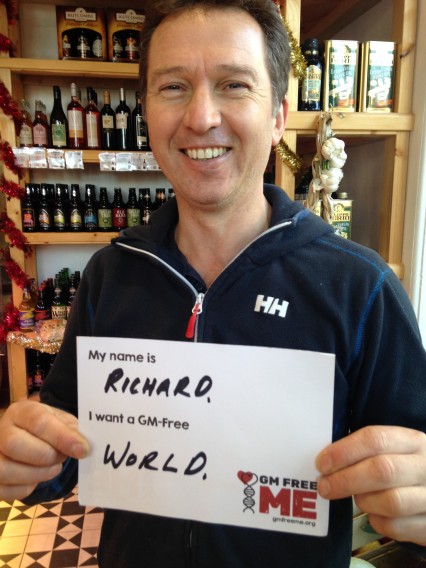 HH
My name is
RICHARD.
I want a GM-Free
WORLD.
GM FREE
ME
gmfreeme.org